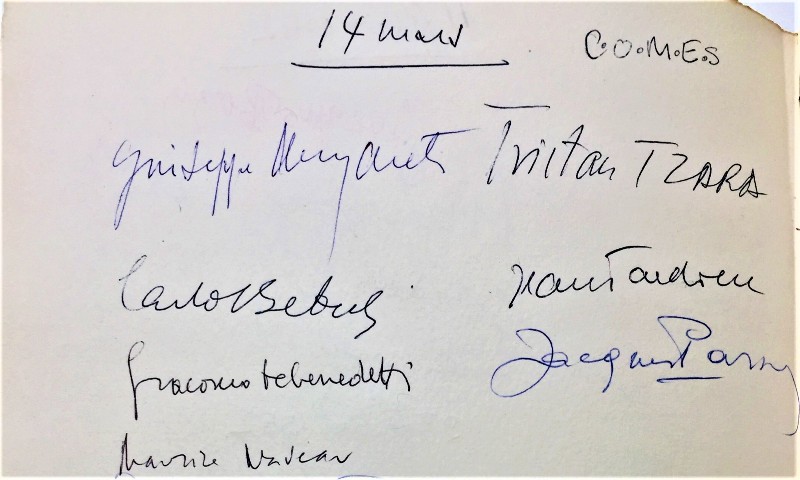 14 mars
C.O.M.E.S
Giuseppe Ungaretti
Tristan TZARA
Carlo Betocchi
Jean Tardieu
Giacomo Debenedetti
Jacques
Maurice Nadeau